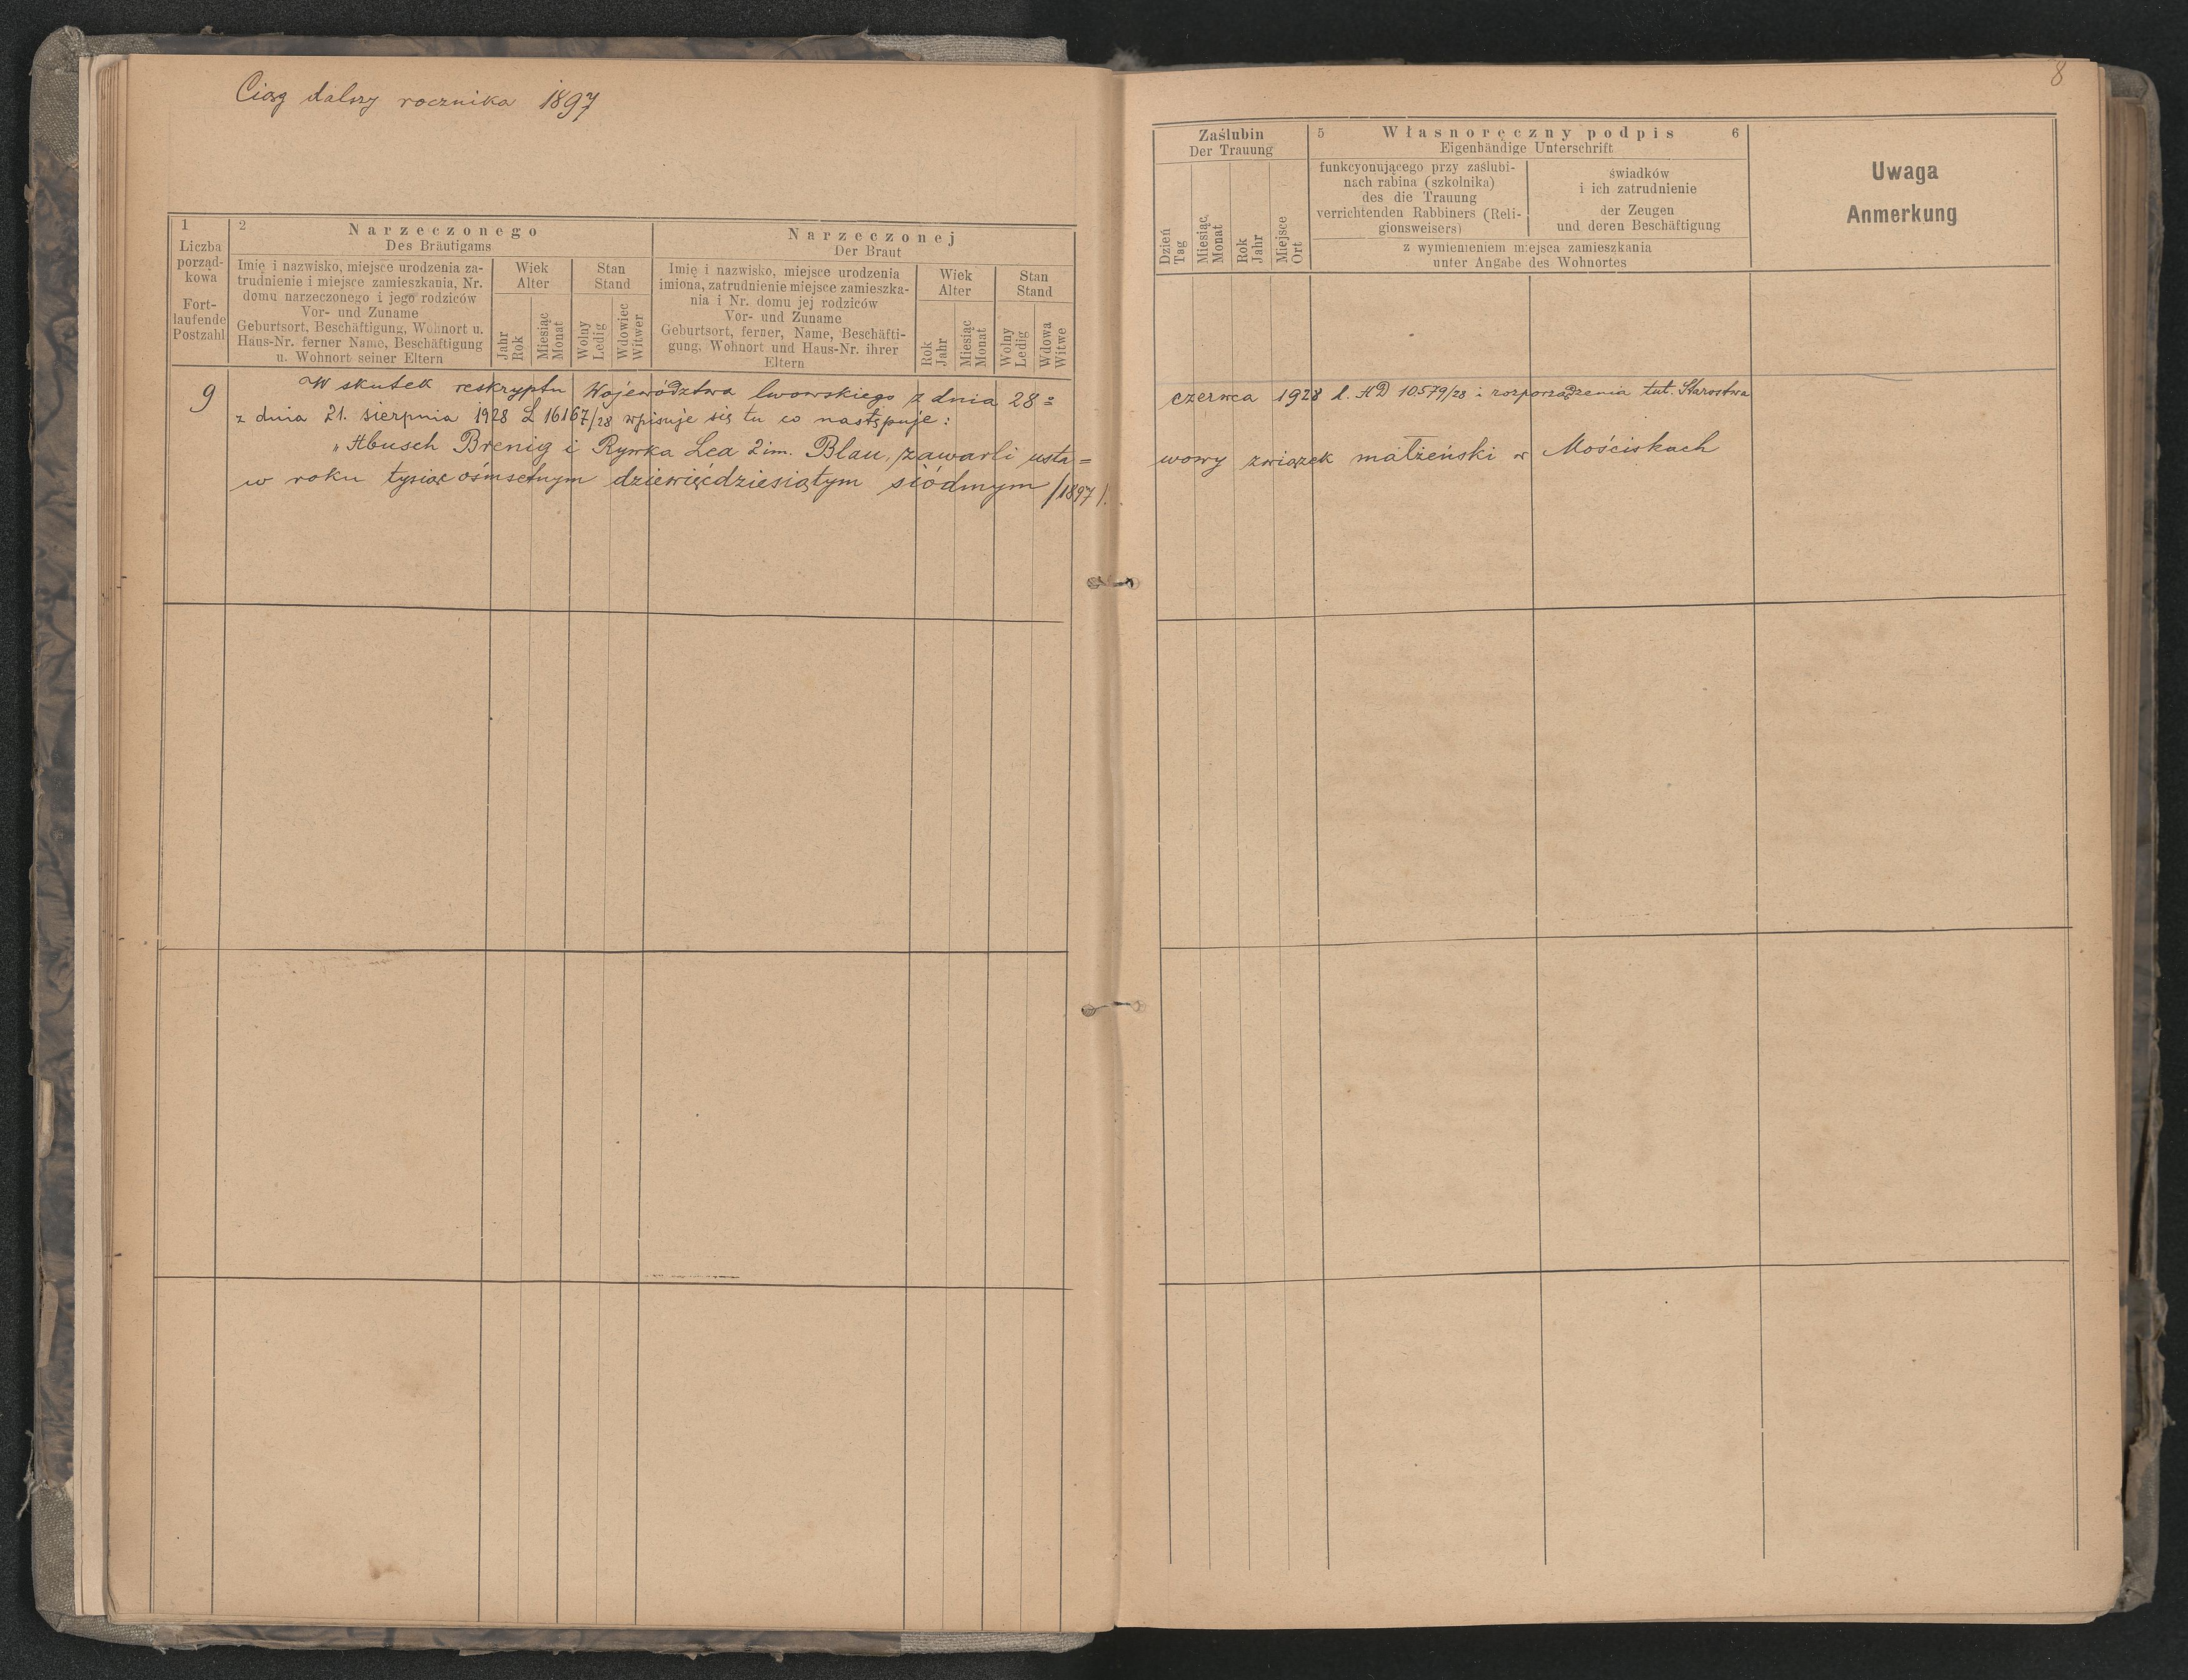 Ciąg dalszy rocznika 1897
8
1
Liczba
porząd-
kowa
Fort-
laufende
Postzahl
2
Narzeczonego
Des Bräutigams
Imię i nazwisko, miejsce urodzenia za-
trudnienie i miejsce zamieszkania, Nr.
domu narzeczonego i jego rodziców
Vor- und Zuname
Geburtsort, Beschäftigung, Wohnort u.
Haus-Nr. ferner Name, Beschäftigung
u. Wohnort seiner Eltern
Wiek
Alter
Jahr
Rok
Miesiąc
Monat
Stan
Stand
Wolny
Ledig
Wdowiec
Witwer
Narzeczonej
Der Braut
Imię i nazwisko, miejsce urodzenia
imiona, zatrudnienie miejsce zamieszka-
nia i Nr. domu jej rodziców
Vor- und Zuname
Geburtsort, ferner, Name, Beschäfti-
gung, Wohnort und Haus-Nr. ihrer
Eltern
Wiek
Alter
Rok
Jahr
Miesiąc
Monat
Stan
Stand
Wolny
Ledig
Wdowa
Witwe
Zaślubin
Der Trauung
Dzień
Tag
Miesiąc
Monat
Rok
Jahr
Miejsce
Ort
5 Własnoręczny podpis 6
Eigenhändige Unterschrift
funkcyonującego przy zaślubi-
nach rabina (szkolnika)
des die Trauung
verrichtenden Rabbiners (Reli-
gionsweisers)
świadków
i ich zatrudnienie
der Zeugen
und deren Beschäftigung
z wymienieniem miejsca zamieszkania
unter Angabe des Wohnortes
Uwaga
Anmerkung
9
W skutek reskryptu Województwa lwowskiego z dnia 28= czerwca 1928 l. AD 10579/28 i rozporządzenia tut. Starostwa
z dnia 21. sierpnia 1928 L 16167/28 wpisuje się tu co następuje:
„Abusch Brenig i Rywka Lea 2im. Blau, zawarli usta= wowy związek małżeński w Mościskach
w roku tysiąc ośmsetnym dziewięćdziesiątym siódmym /1897/.